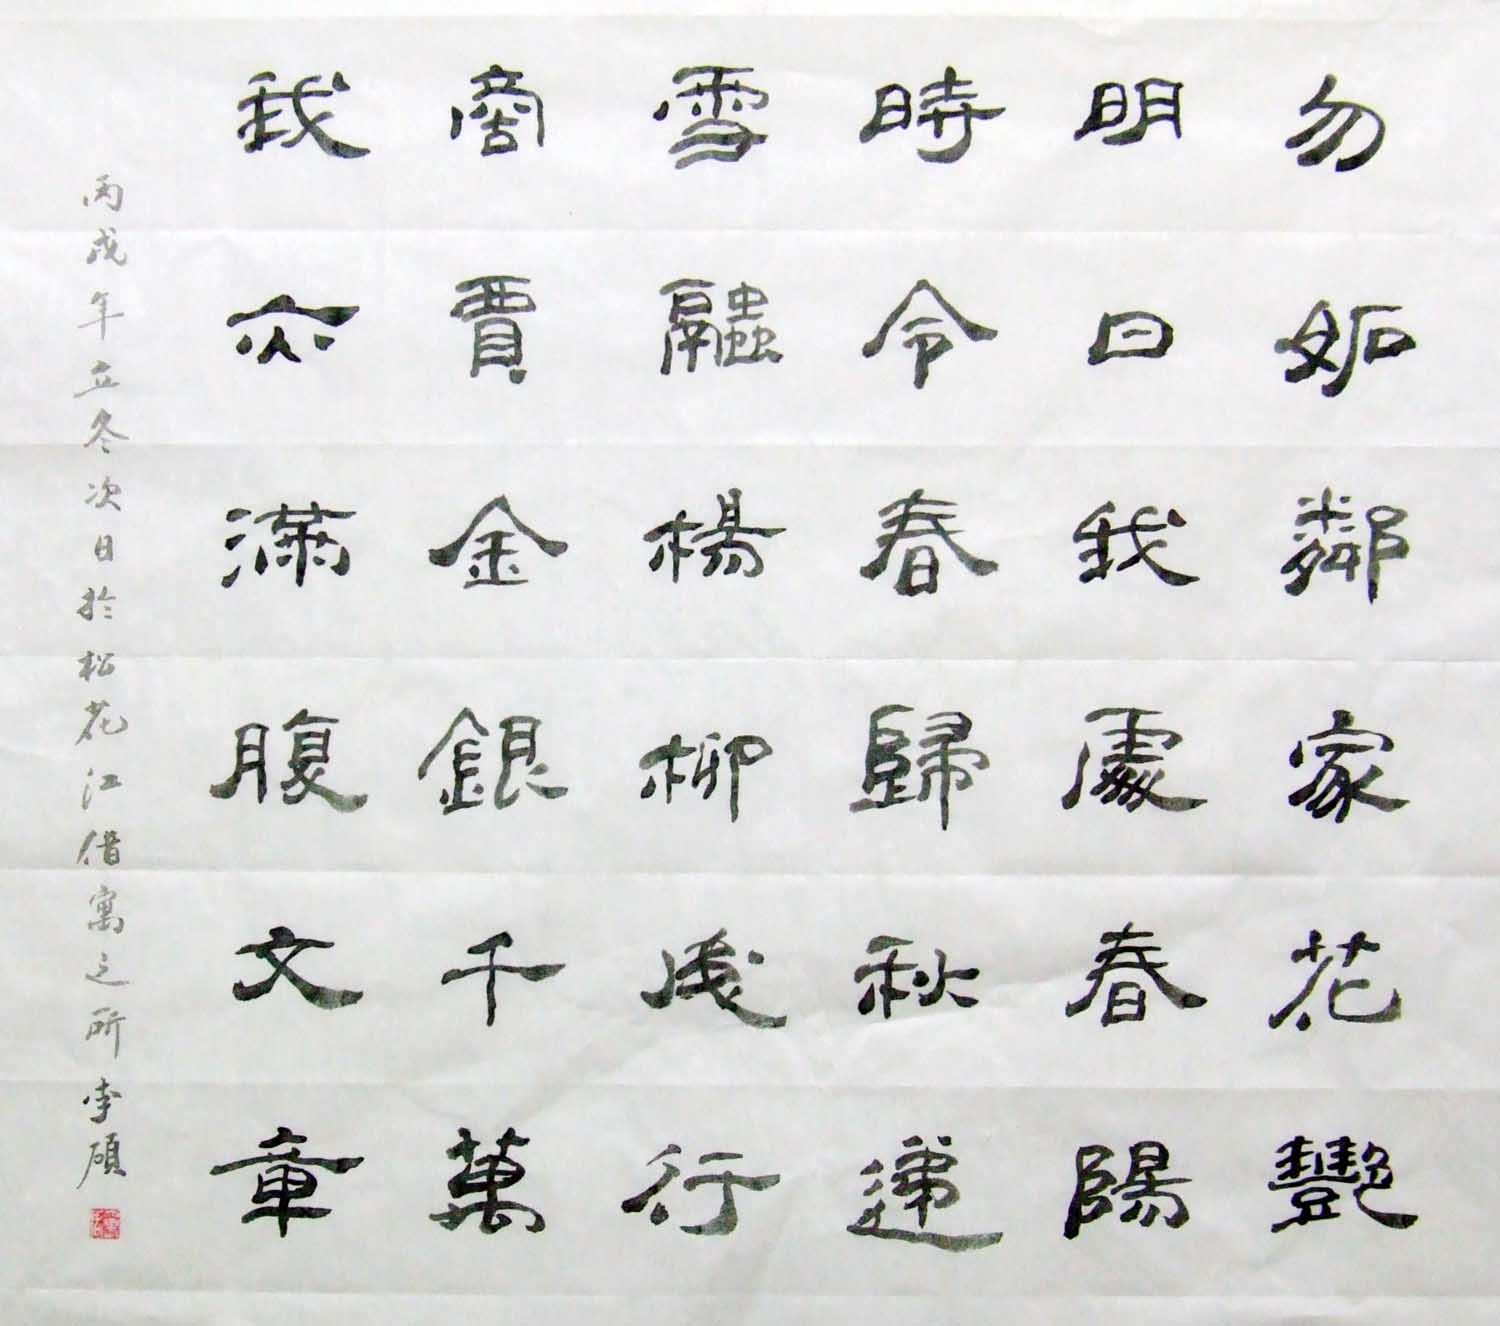 勿妬鄰家花艷
明日我處春陽
時令春歸秋遞
雪融楊柳成行
商賈金銀千萬
我亦滿腹文章
丙戌年立冬次日於松花江借寓之所 李碩